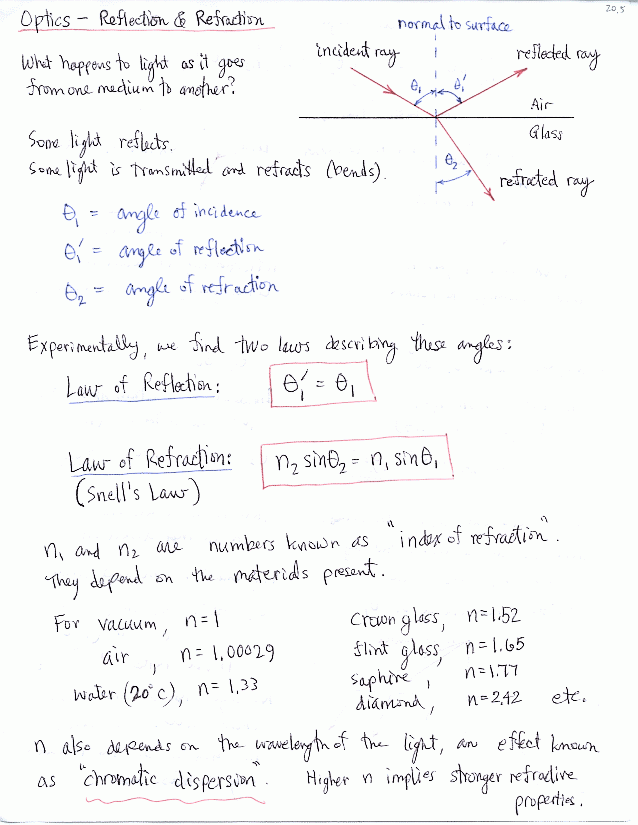 Optics - Reflection & Refraction
20.5
normal to surface
incident ray
reflected ray
What happens to light as it goes
from one medium to another?
θ₁
θ₁′
Air
Glass
Some light reflects.
Some light is transmitted and refracts (bends).
θ₂
refracted ray
θ₁ = angle of incidence
θ₁′ = angle of reflection
θ₂ = angle of refraction
Experimentally, we find two laws describing these angles:
Law of Reflection: θ₁′ = θ₁
Law of Refraction: n₂ sinθ₂ = n₁ sinθ₁
(Snell's Law)
n₁ and n₂ are numbers known as "index of refraction".
They depend on the materials present.
For vacuum, n=1
air, n= 1.00029
water (20°C), n= 1.33
Crown glass, n=1.52
flint glass, n=1.65
saphire, n=1.77
diamond, n=2.42 etc.
n also depends on the wavelength of the light, an effect known
as "chromatic dispersion". Higher n implies stronger refractive
properties.